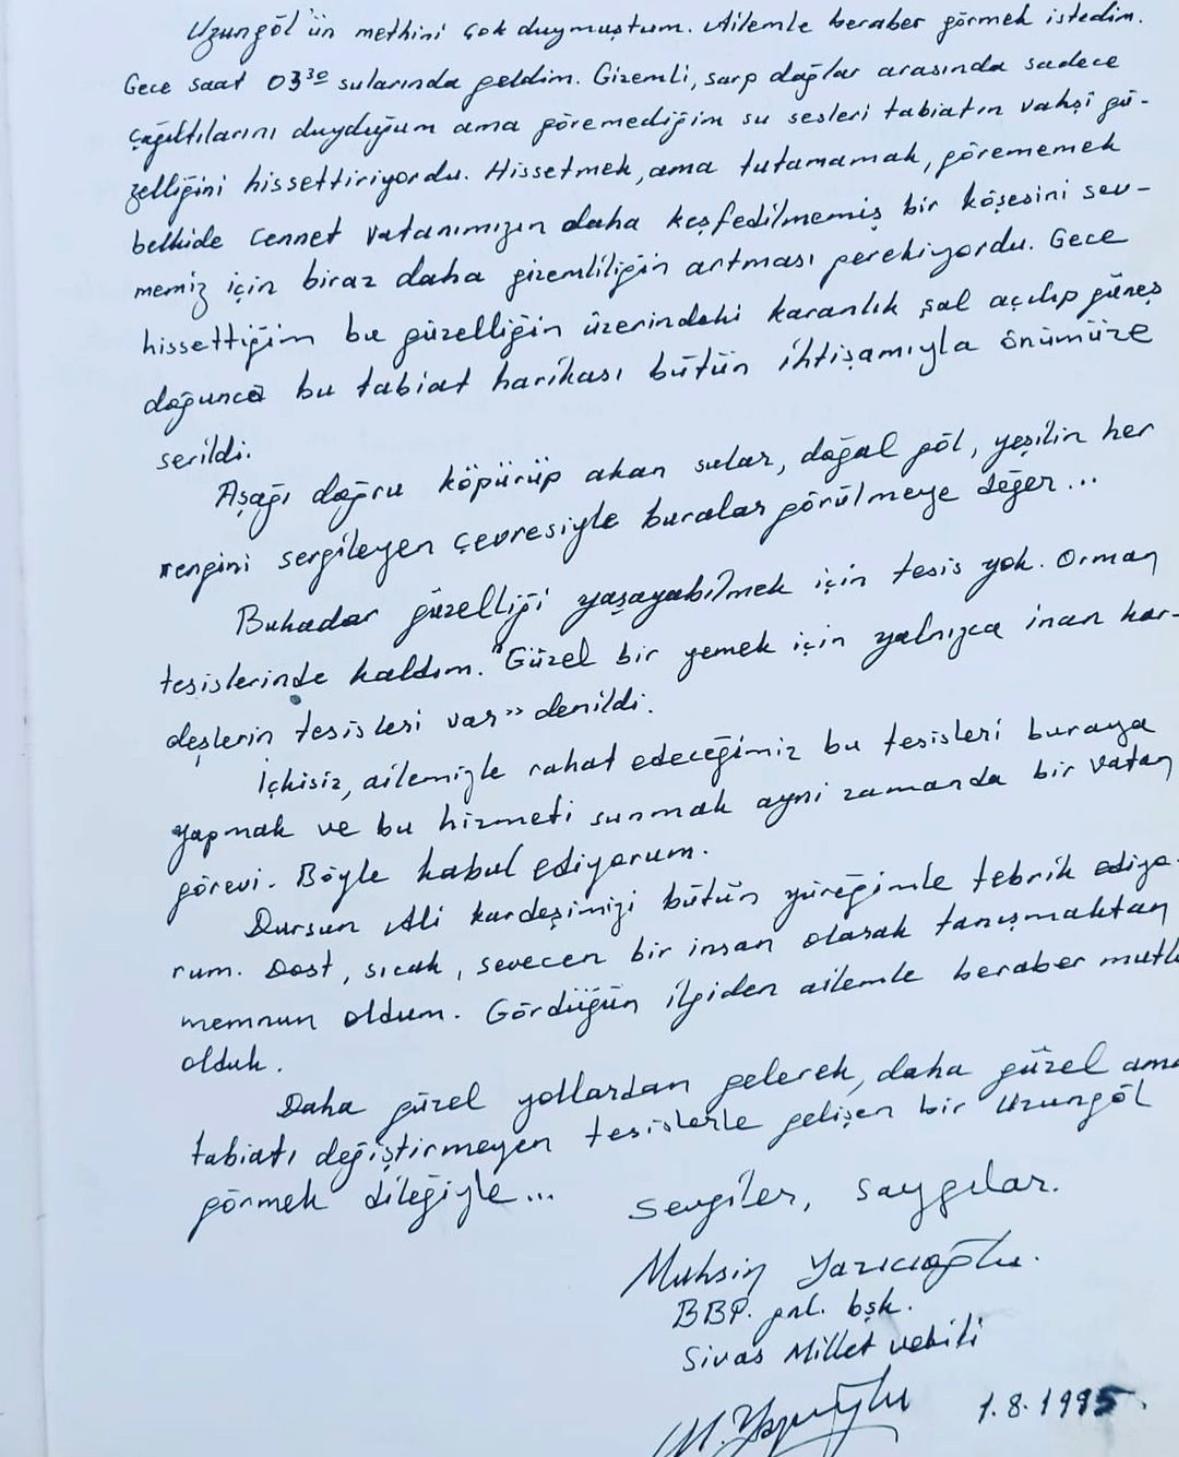 Uzungöl'ün methini çok duymuştum. Ailemle beraber görmek istedim.
Gece saat 03³⁰ sularında geldim. Gizemli, sarp dağlar arasında sadece
çağıltılarını duyduğum ama göremediğim su sesleri tabiatın vahşi gü-
zelliğini hissettiriyordu. Hissetmek, ama tutamamak, görememek
belkide cennet vatanımızın daha keşfedilmemiş bir köşesini sev-
memiz için biraz daha gizemliliğin artması gerekiyordu. Gece
hissettiğim bu güzelliğin üzerindeki karanlık şal açılıp güneş
doğunca bu tabiat harikası bütün ihtişamıyla önümüze
serildi.
Aşağı doğru köpürüp akan sular, doğal göl, yeşilin her
rengini sergileyen çevresiyle buralar görülmeye değer...
Bukadar güzelliği yaşayabilmek için tesis yok. Orman
tesislerinde kaldım. "Güzel bir yemek için yalnızca inan kar-
deşlerin tesisleri var" denildi.
İçkisiz, ailemizle rahat edeceğimiz bu tesisleri buraya
yapmak ve bu hizmeti sunmak ayni zamanda bir vatan
görevi. Böyle kabul ediyorum.
Dursun Ali kardeşimizi bütün yüreğimle tebrik ediyo-
rum. Dost, sıcak, sevecen bir insan olarak tanışmaktan
memnun oldum. Gördüğün ilgiden ailemle beraber mutl
olduk.
Daha güzel yollardan gelerek, daha güzel ama
tabiatı değiştirmeyen tesislerle gelişen bir Uzungöl
görmek dileğiyle...
Sevgiler, saygılar.
Muhsin Yazıcıoğlu.
BBP. gnl. bşk.
Sivas Millet vekili
M. Yazıcıoğlu 1.8.1995.